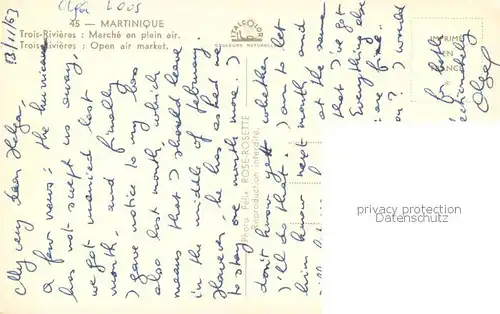 Olga Loos
45 — MARTINIQUE
Trois-Rivières : Marché en plein air.
Trois-Rivières : Open air market.
ITALCOLOR
COULEURS NATURELLES
13/11/63
My very dear Helga,
a few news: the hurricane
has not swept us away,
we got married last
month, and finally
I gave notice to my boss
also last month, which
means that I should leave
in the middle of february.
However, he has asked us
to stay one month more. I
don't know yet whether
I'll do that. I am to let
him know next month and
at the same
that I've got
Everything else
are fine.
I would
for both
affectionately
Olga
Photo Félix ROSE-ROSETTE
Reproduction interdite.
IMPRIMÉ
EN
FRANCE
privacy protection
Datenschutz